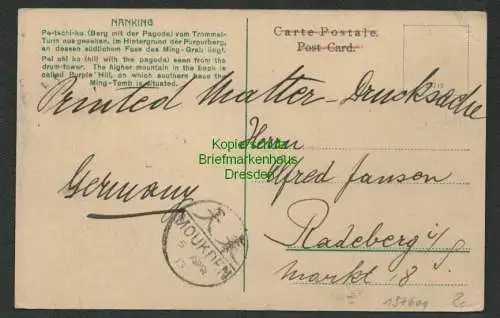 NANKING
Pe-tschi-ko (Berg mit der Pagode) vom Trommel-
Turm aus gesehen. Im Hintergrund der Purpurberg,
an dessen südlichem Fuss das Ming-Grab liegt.
Pei chi ko (hill with the pagoda) seen from the
drum-tower. The higher mountain in the back is
called Purple Hill, on which southern base the
Ming-Tomb is situated.
Carte Postale.
Post Card.
Printed Matter - Drucksache
Herrn
Alfred Janson
Germany
Radeberg i/S
Markt 8
MOUKDEN
5
APR
13
Kopierschutz
Briefmarkenhaus
Dresden